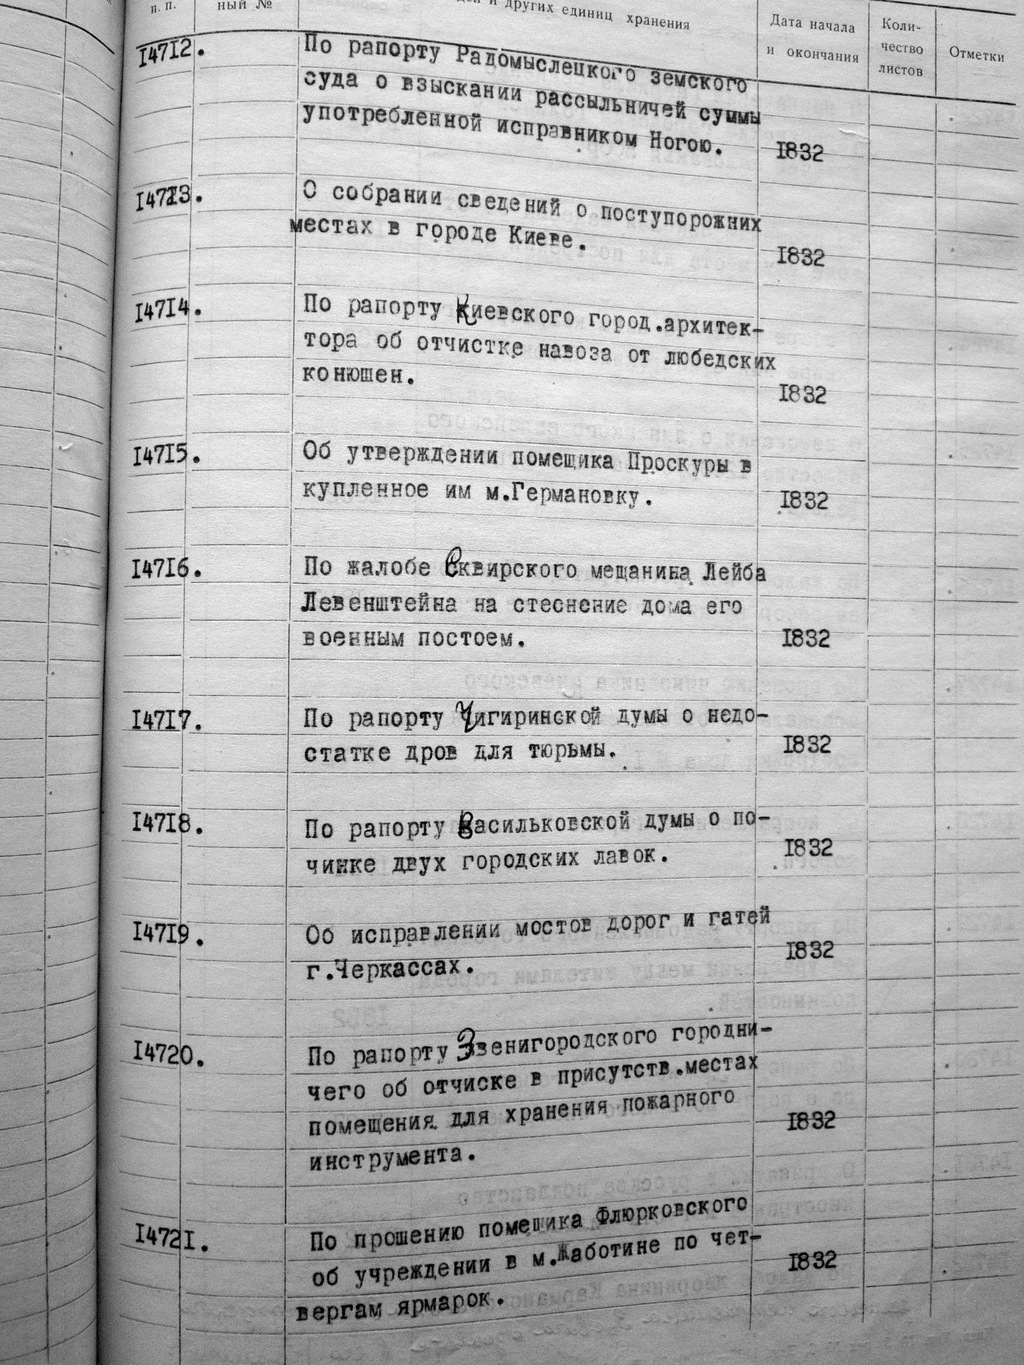 п. п.
ный №
и других единиц хранения
Дата начала
и окончания
Коли-
чество
листов
Отметки
14712.
По рапорту Радомыслецкого земского
суда о взыскании рассыльничей суммы
употребленной исправником Ногою.
1832
14713.
О собрании сведений о поступорожних
местах в городе Киеве.
1832
14714.
По рапорту Киевского город.архитек-
тора об отчистке навоза от любедских
конюшен.
1832
14715.
Об утверждении помещика Проскуры в
купленное им м.Германовку.
1832
14716.
По жалобе Сквирского мещанина Лейба
Левенштейна на стеснение дома его
военным постоем.
1832
14717.
По рапорту Чигиринской думы о недо-
статке дров для тюрьмы.
1832
14718.
По рапорту Васильковской думы о по-
чинке двух городских лавок.
1832
14719.
Об исправлении мостов дорог и гатей
г.Черкассах.
1832
14720.
По рапорту Звенигородского городни-
чего об отчиске в присутств.местах
помещения для хранения пожарного
инструмента.
1832
14721.
По прошению помещика Флюрковского
об учреждении в м.Жаботине по чет-
вергам ярмарок.
1832